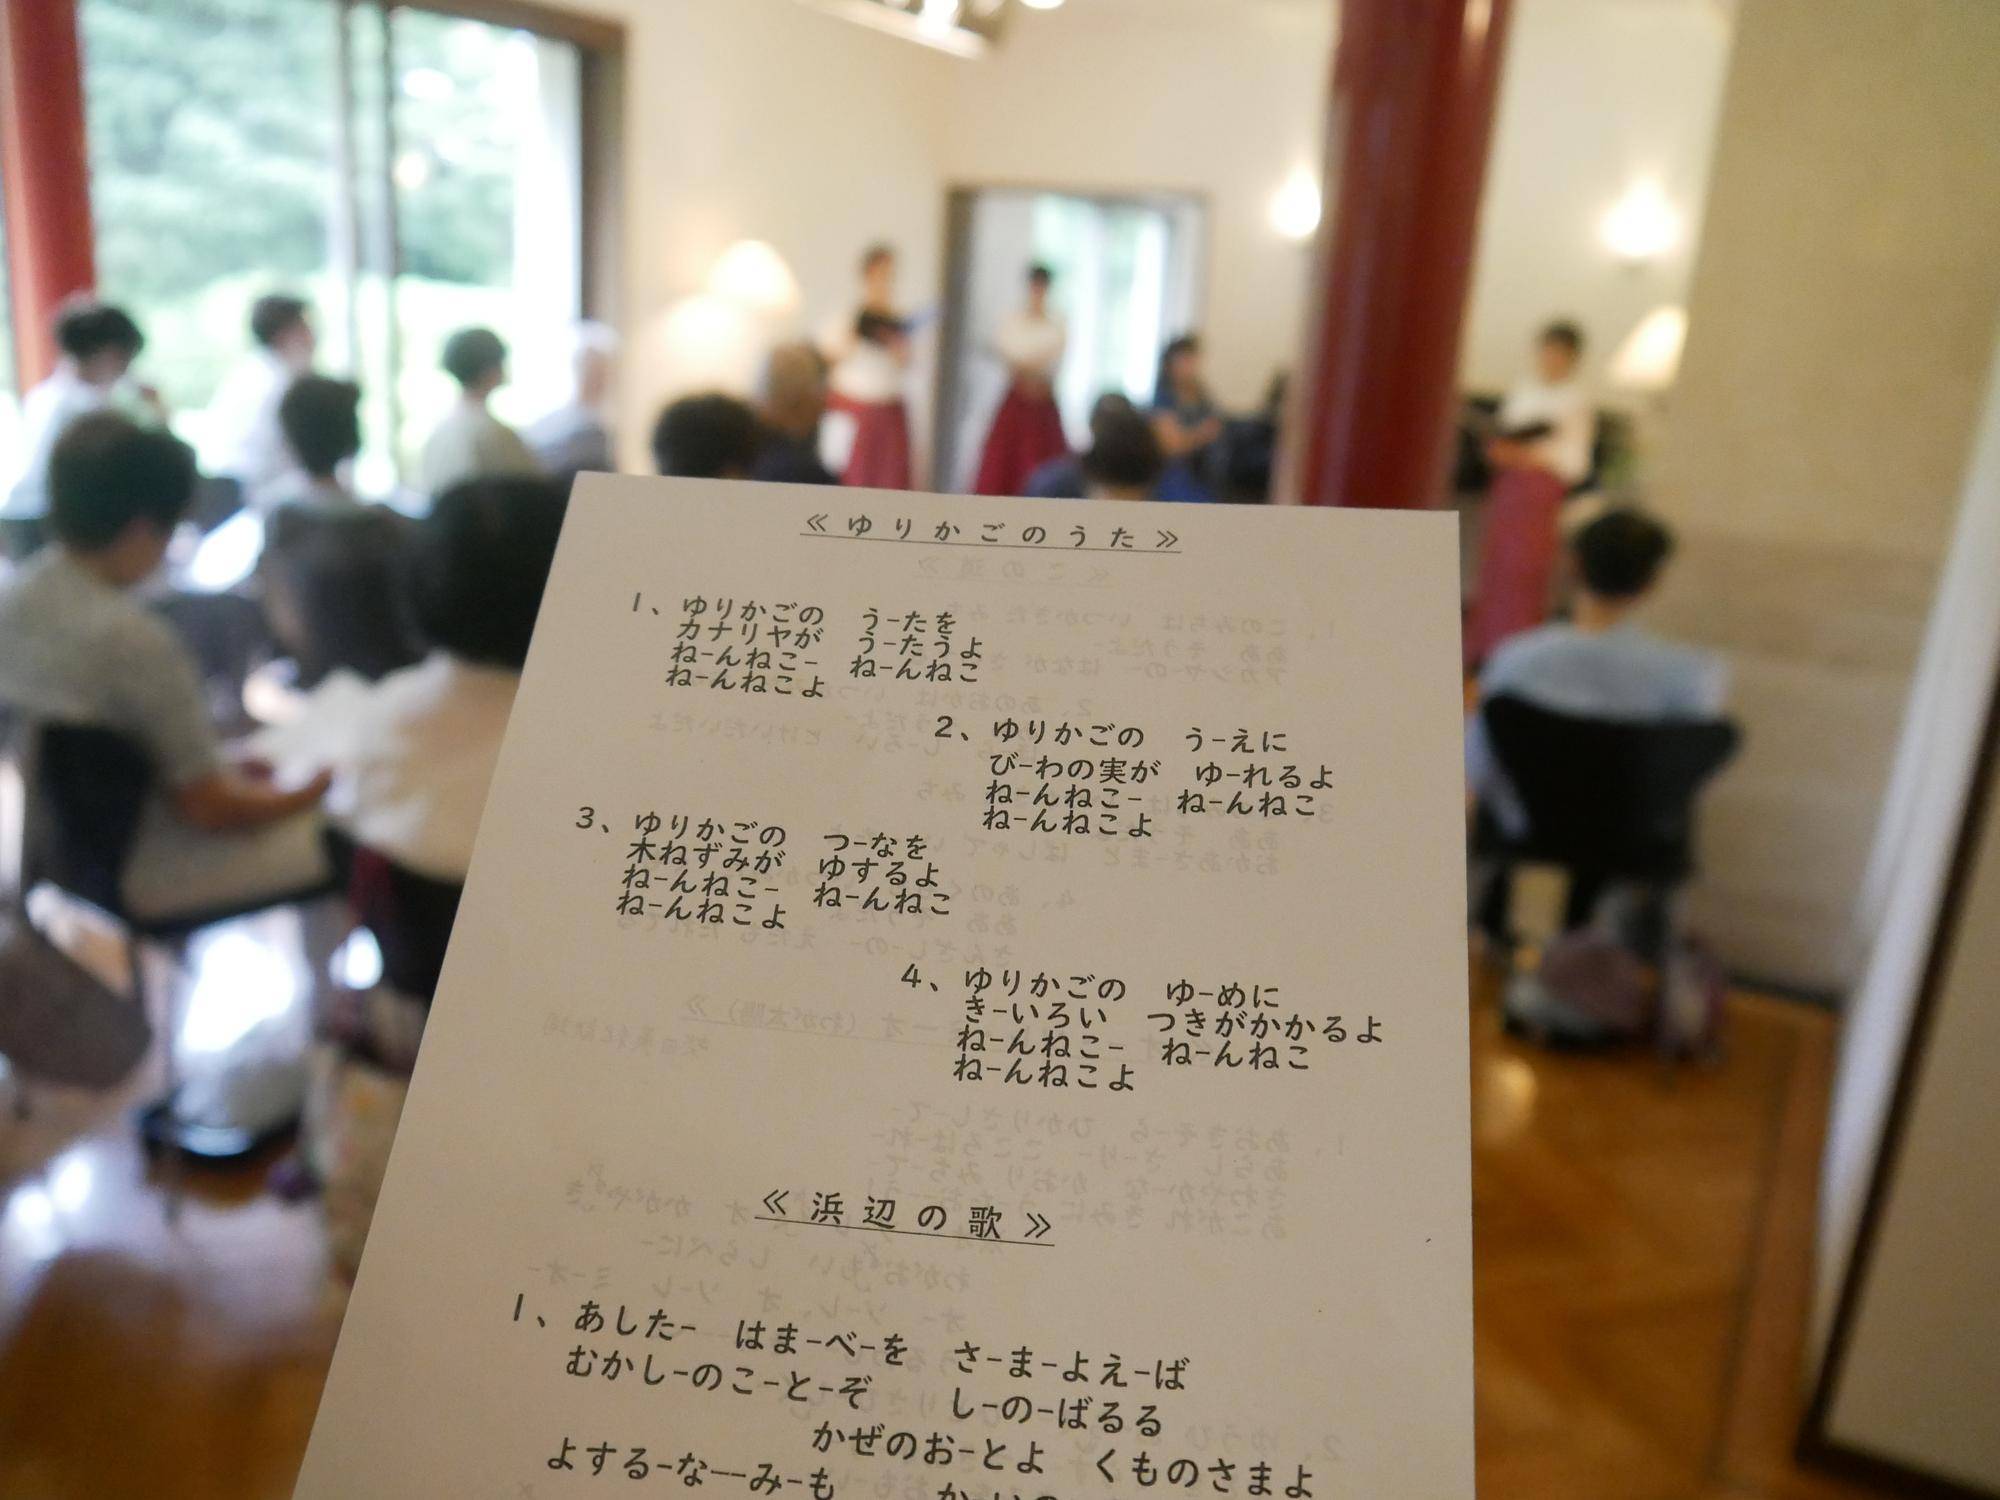 ≪ゆりかごのうた≫
1、ゆりかごの　うーたを
カナリヤが　うーたうよ
ねーんねこー　ねーんねこ
ねーんねこよ
2、ゆりかごの　うーえに
びーわの実が　ゆーれるよ
ねーんねこー　ねーんねこ
ねーんねこよ
3、ゆりかごの　つーなを
木ねずみが　ゆするよ
ねーんねこー　ねーんねこ
ねーんねこよ
4、ゆりかごの　ゆーめに
きーいろい　つきがかかるよ
ねーんねこー　ねーんねこ
ねーんねこよ
≪浜辺の歌≫
1、あしたー　はまーべーを　さーまーよえーば
むかしーのこーとーぞ　しーのーばるる
かぜのおーとよ　くものさまよ
よするーなーーみーも